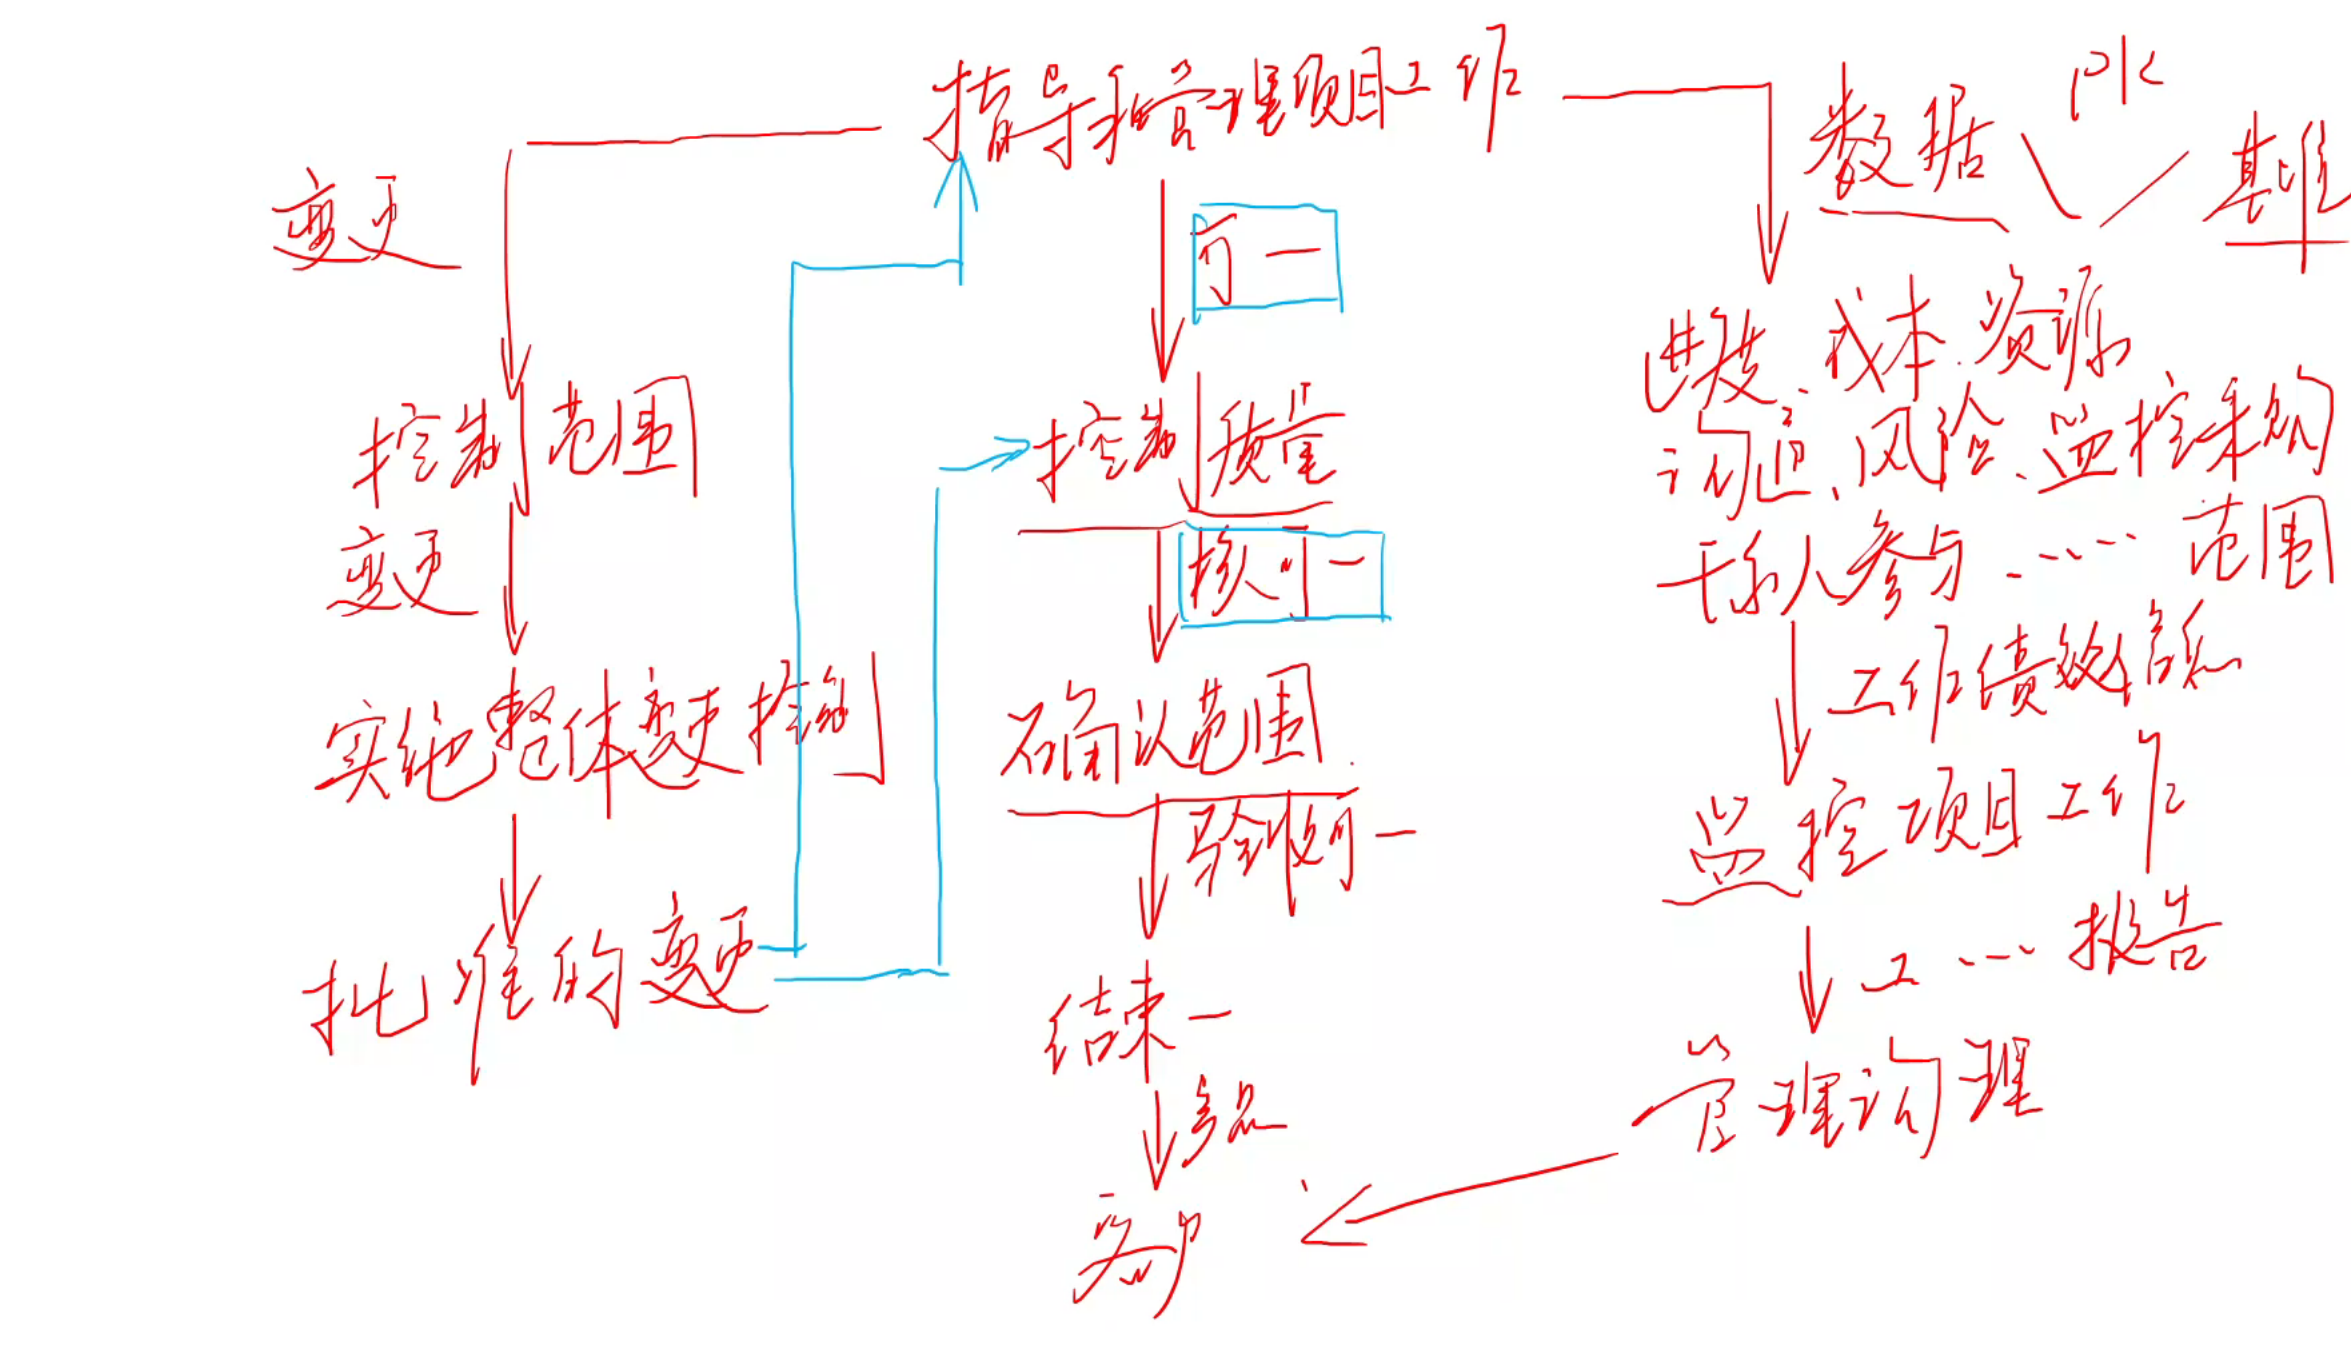 指导和管理项目工作
变更
控制范围
变更
实施整体变更控制
批准的变更
可一
控制质量
核可一
确认范围
验收可一
结束一
产品
客户
数据 PK 基准
进度、成本、资源
沟通、风险、监控采购
干系人参与 …… 范围
工作绩效信息
监控项目工作
工 …… 报告
管理沟